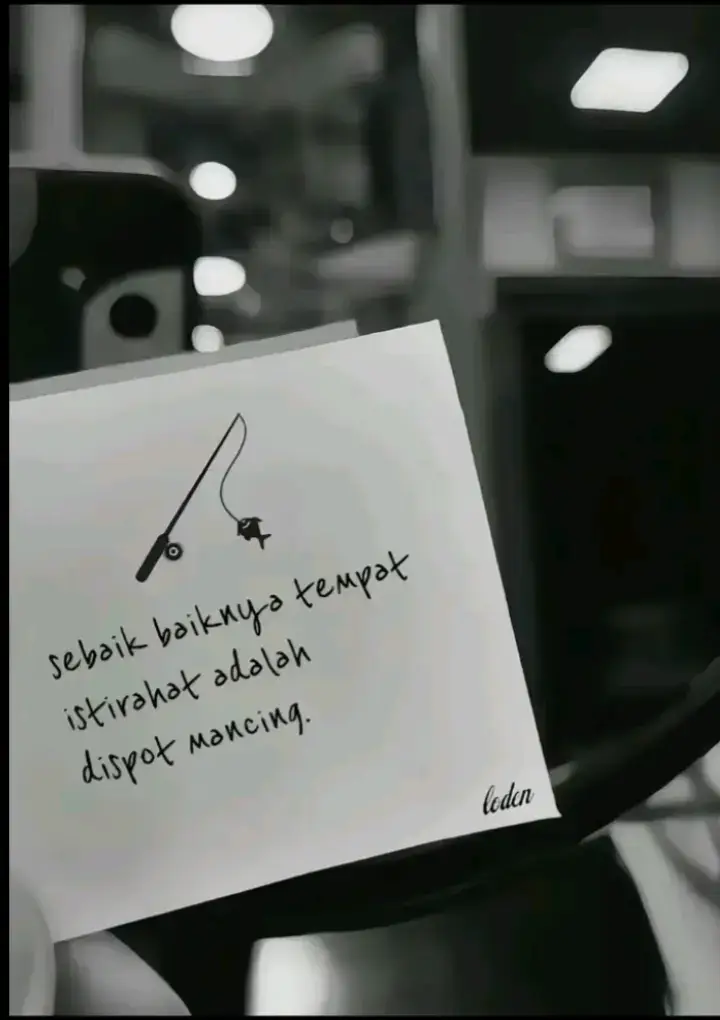 sebaik baiknya tempat
istirahat adalah
dispot mancing.
loden